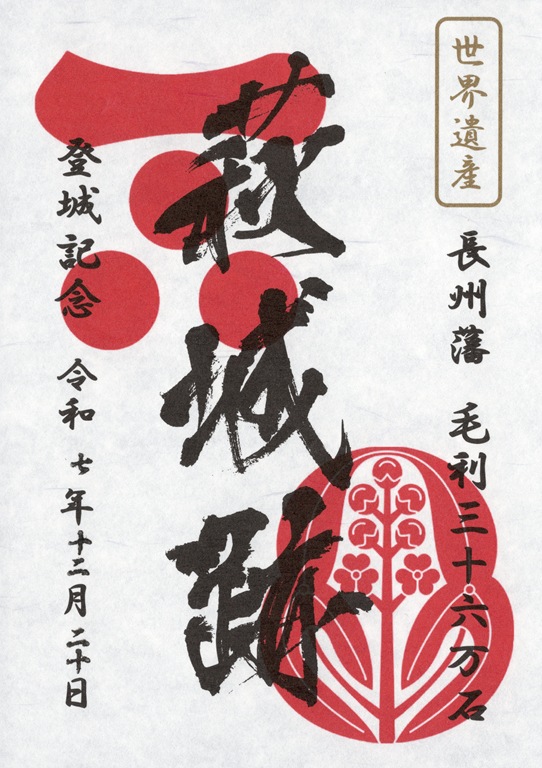 世界遺産
長州藩 毛利三十六万石
萩城跡
登城記念 令和 七年十二月二十日